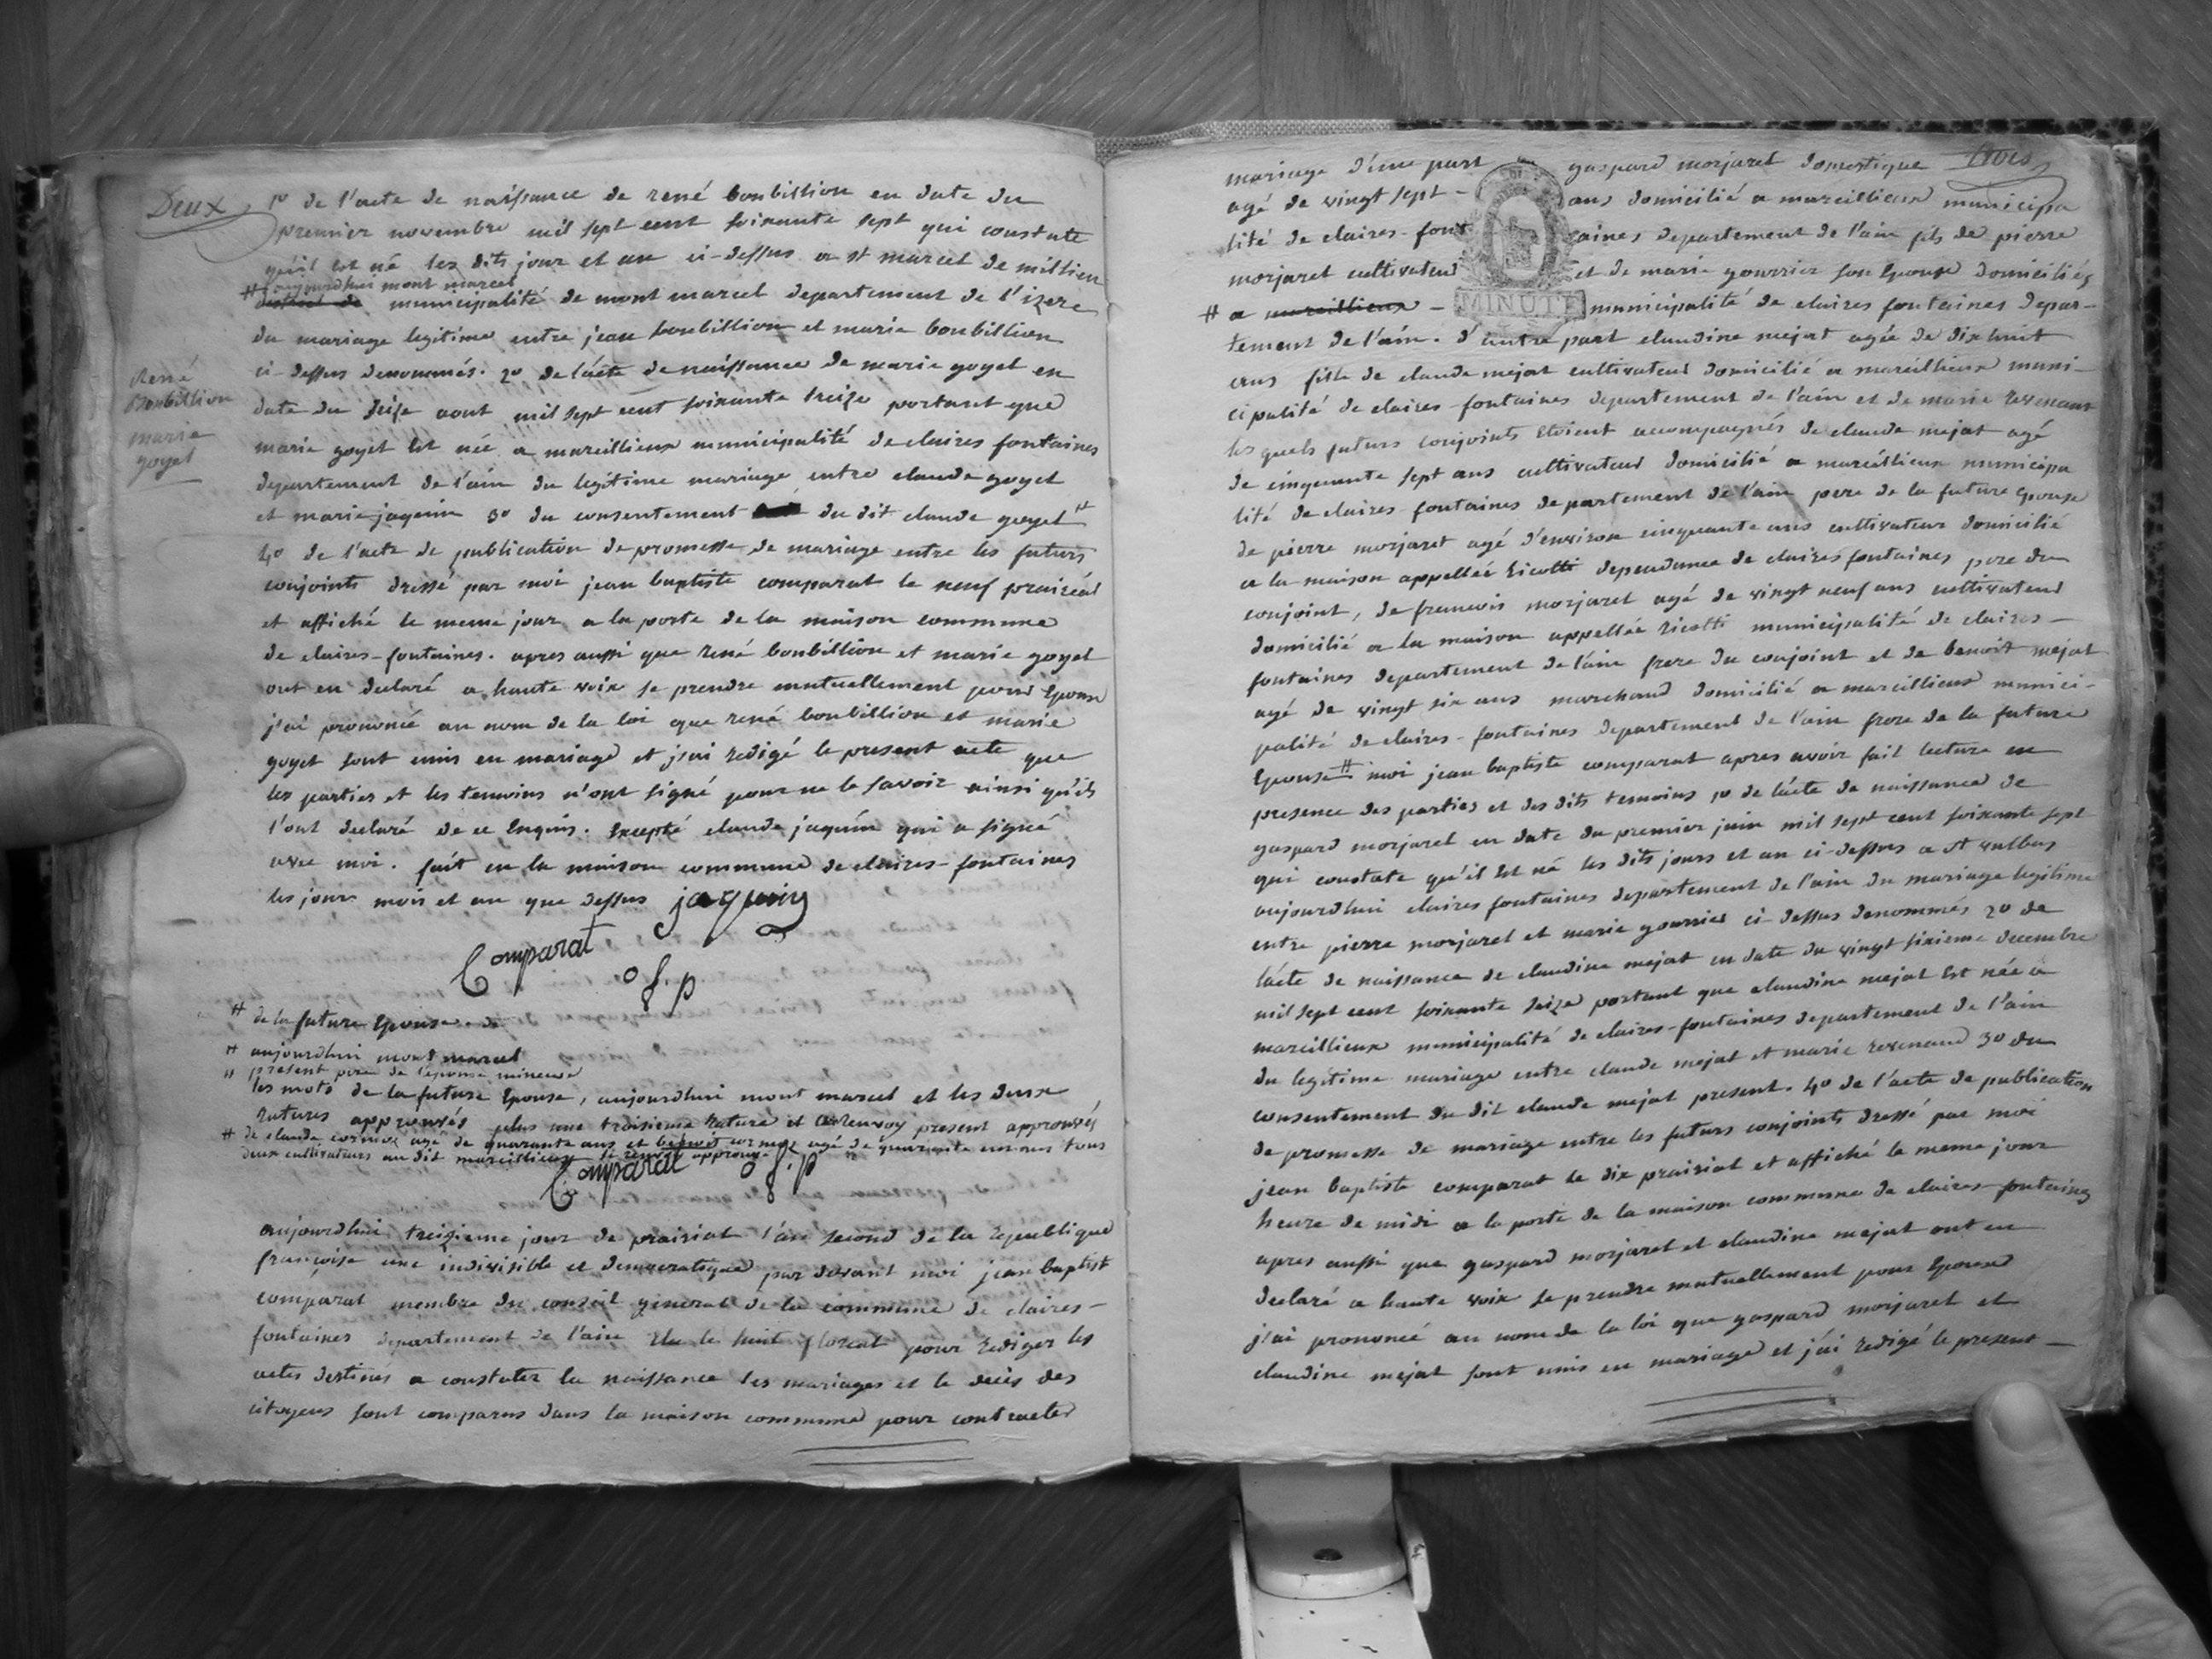 Deux
1º de l'acte de naissance de rené bonbillion en date du
premier novembre mil sept cent soixante sept qui constate
qu'il est né les dits jour et an ci-dessus a st marcel de
# aujourdhui mont marcel
municipalité de mont marcel departement de l'izere
du mariage legitime entre jean bonbillion et marie bonbillion
ci-dessus denommés. 2º de lácte de naissance de marie goyet en
date du seize aout mil sept cent soixante treize portant que
marie goyet est née a mareillieux municipalité de claires fontaines
departement de l'ain du legitime mariage entre claude goyet
et marie jaquin 3º du consentement du dit claude goyet #
4º de l'acte de publication de promesse de mariage entre les futurs
conjoints dressé par moi jean baptiste comparat le neuf prairéal
et affiché le meme jour a la porte de la maison commune
de claires-fontaines. apres aussi que rené bonbillion et marie goyet
ont eu declaré a haute voix se prendre mutuellement pour epoux
j'ai prononcé au nom de la loi que rené bonbillion et marie
goyet sont unis en mariage et j'ai redigé le present acte que
les parties et les temoins n'ont signé pour ne le savoir ainsi qu'ils
l'ont declaré de ce enquis. excepté claude jaquin qui a signé
avec moi. fait en la maison commune de claires-fontaines
les jours mois et an que dessus jaquin
Comparat
o f. p
René
Bonbillion
marie
goyet
# de la future epouse
# aujourdhui mont marcel
# present pere de l'epouse mineure
les mots de la future epouse, aujourdhui mont marcel et les deux
ratures approuvés plus une troisieme rature et renvoy present approuvés
# de claude cormox agé de quarante ans et benoit cormox agé de quarante ans tous
deux cultivateurs au dit mareillieux le renvoi approuvé
Comparat o f. p
aujourdhui treizieme jour de prairial l'an second de la republique
françoise une indivisible et democratique par devant moi jean baptist
comparat membre du conseil general de la commune de claires-
fontaines departement de l'ain elu le huit floreal pour rediger les
actes destinés a constater la naissance les mariages et le décès des
citoyens sont comparus dans la maison commune pour contracter
trois
mariage d'une part gaspard morjaret domestique
agé de vingt sept - ans domicilié a mareillieux municipa
lité de claires-fontaines departement de l'ain fils de pierre
morjaret cultivateur et de marie gourrier son epouse domiciliés
# a mareillieux - municipalité de claires fontaines depar-
MINUTE
tement de l'ain. d'autre part claudine mejat agée de dixhuit
ans fille de claude mejat cultivateur domicilié a mareillieux muni-
cipalité de claires-fontaines departement de l'ain et de marie revenant
les quels futurs conjoints etoient accompagnés de claude mejat agé
de cinquante sept ans cultivateur domicilié a mareillieux municipa
lité de claires-fontaines departement de l'ain pere de la future epouse
de pierre morjaret agé d'environ cinquante ans cultivateur domicilié
a la maison appellée ricotti dependance de claires fontaines pere du
conjoint, de francois morjaret agé de vingt neuf ans cultivateur
domicilié a la maison appellée ricotti municipalité de claires-
fontaines departement de l'ain frere du conjoint et de benoit mejat
agé de vingt six ans marchand domicilié a mareillieux munici-
palité de claires-fontaines departement de l'ain frere de la future
epouse # moi jean baptiste comparat apres avoir fait lecture en
presence des parties et des dits temoins 1º de lácte de naissance de
gaspard morjaret en date du premier juin mil sept cent soixante sept
qui constate qu'il est né les dits jours et an ci-dessus a st vulbas
aujourdhui claires fontaines departement de l'ain du mariage legitime
entre pierre morjaret et marie gourrier ci-dessus denommés 2º de
lácte de naissance de claudine mejat en date du vingt sixieme decembre
mil sept cent soixante seize portant que claudine mejat est née a
mareillieux municipalité de claires-fontaines departement de l'ain
du legitime mariage entre claude mejat et marie revenant 3º du
consentement du dit claude mejat present. 4º de l'acte de publication
de promesse de mariage entre les futurs conjoints dressé par moi
jean baptiste comparat le dix prairial et affiché le meme jour
heure de midi a la porte de la maison commune de claires-fontaines
apres aussi que gaspard morjaret et claudine mejat ont eu
declaré a haute voix se prendre mutuellement pour epoux
j'ai prononcé au nom de la loi que gaspard morjaret et
claudine mejat sont unis en mariage et j'ai redigé le present -